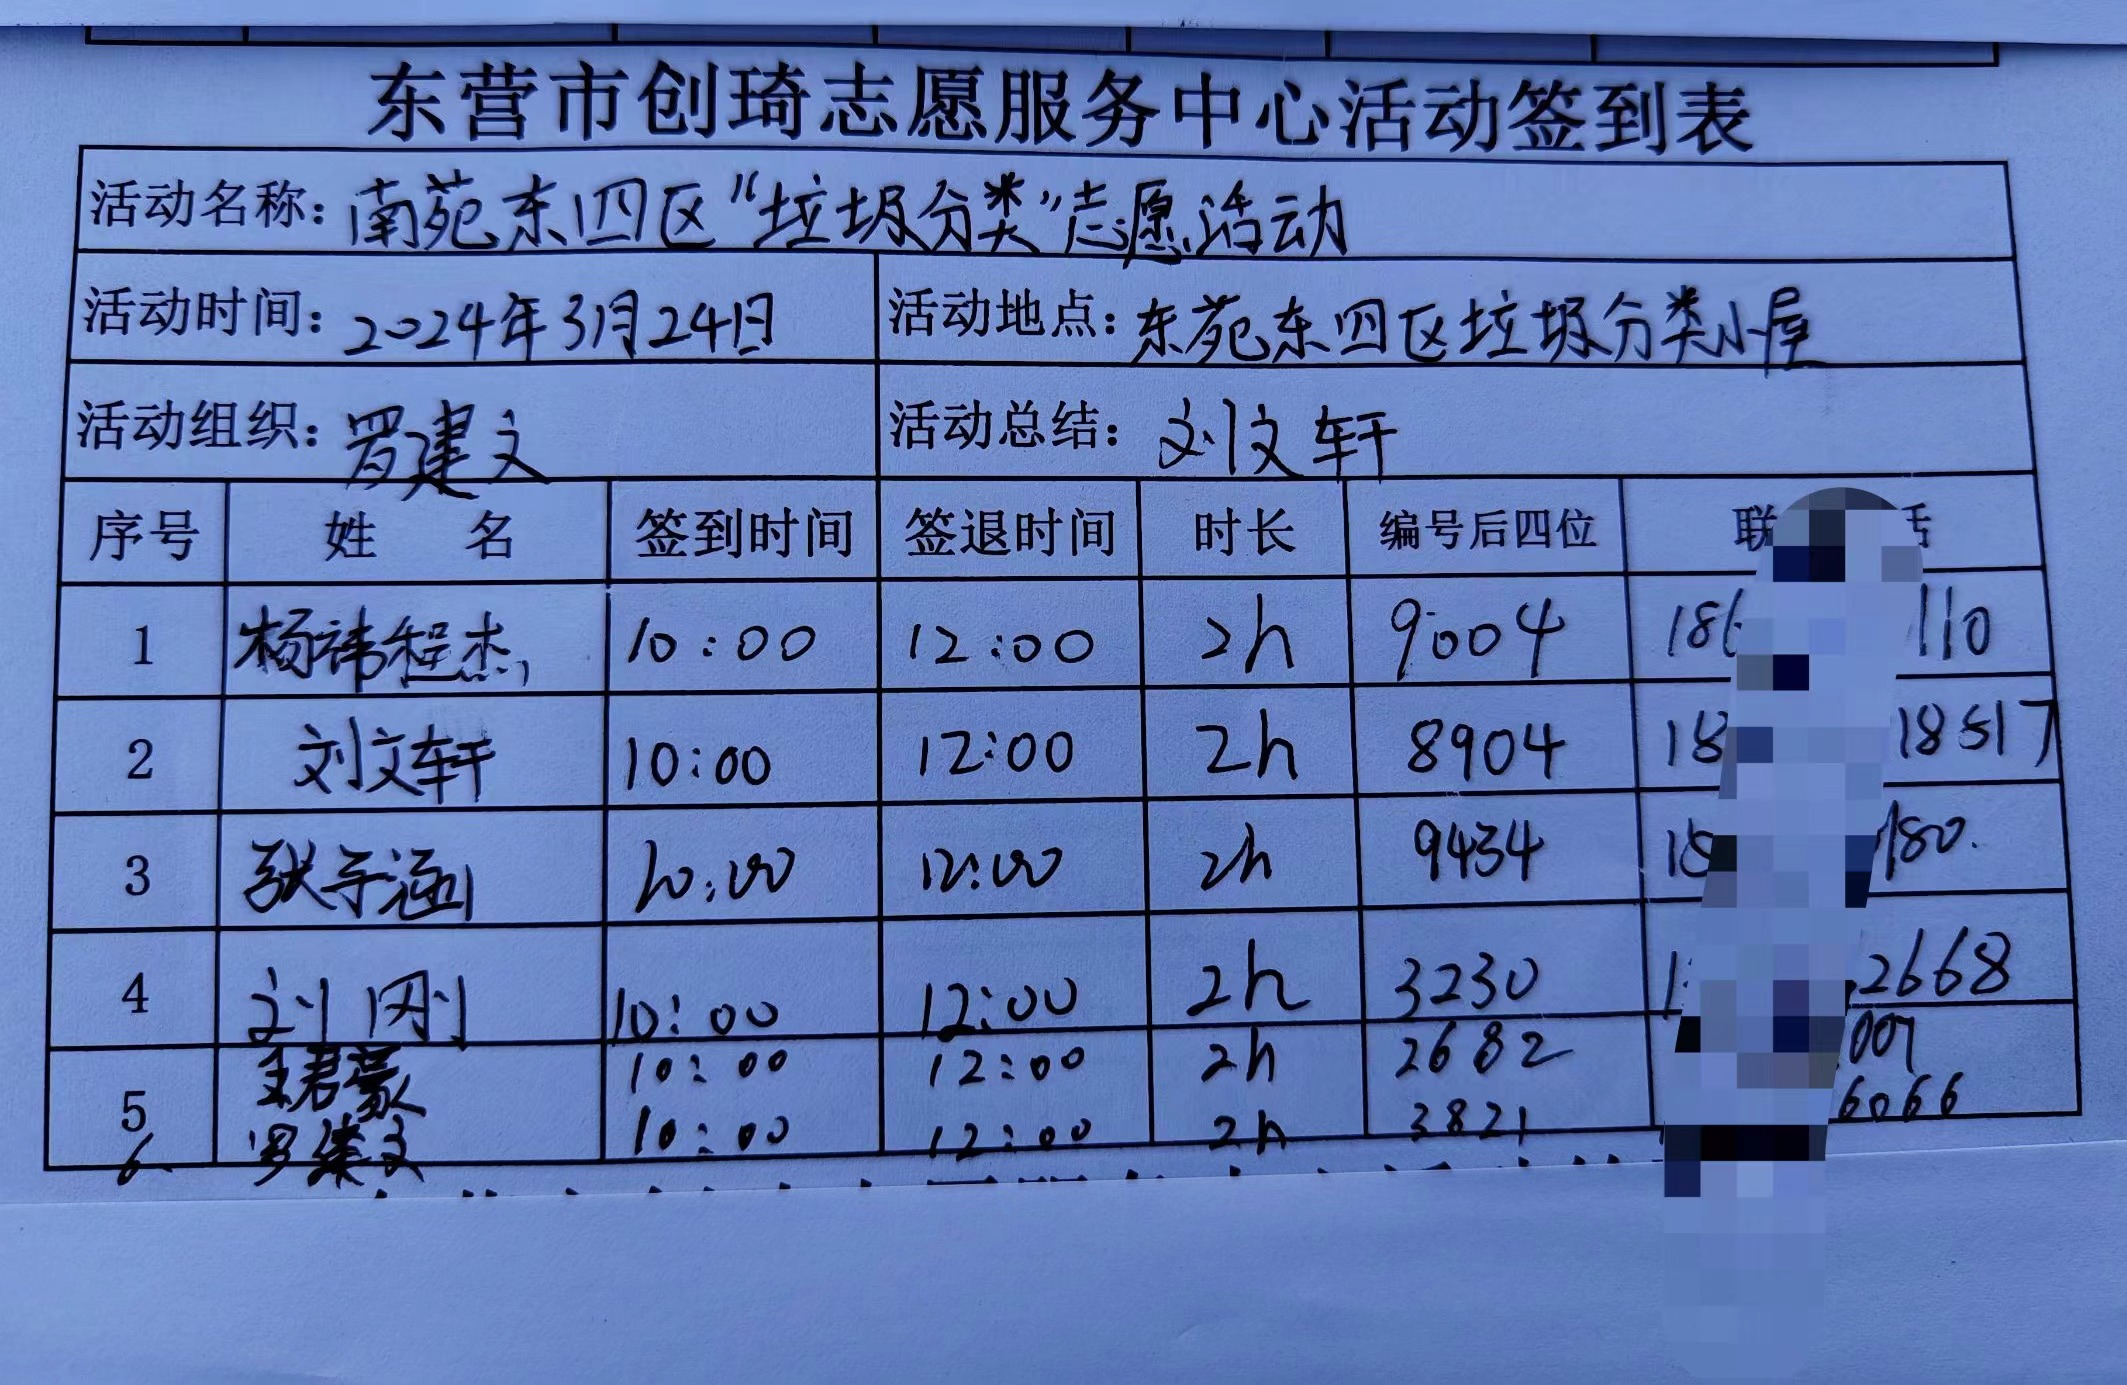 东营市创琦志愿服务中心活动签到表
活动名称：南苑东四区“垃圾分类”志愿活动
活动时间：2024年3月24日 活动地点：东苑东四区垃圾分类小屋
活动组织：罗建文 活动总结：刘文轩
序号 姓名 签到时间 签退时间 时长 编号后四位 联 话
1 杨祎程杰 10:00 12:00 2h 9004 186 110
2 刘文轩 10:00 12:00 2h 8904 18 18517
3 张子涵 10:00 12:00 2h 9434 18 180.
4 刘刚 10:00 12:00 2h 3230 1 2668
5 王君豪 10:00 12:00 2h 2682 007
6 罗建文 10:00 12:00 2h 3821 6066